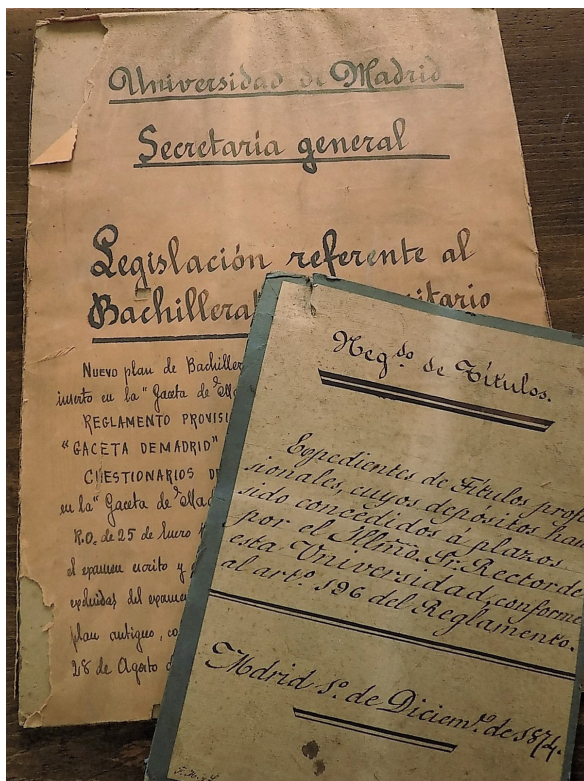 Universidad de Madrid
Secretaría general
Legislación referente al
Bachillerat itario
Nuevo plan de Bachiller
inserto en la "Gaceta de Ma
REGLAMENTO PROVISI
"GACETA DE MADRID"
CUESTIONARIOS DE
en la "Gaceta de Mad
R.O. de 25 de Enero
el examen escrito y
excluidas del examen
plan antiguo, co
28 de Agosto d
Neg.do de Títulos.
Expedientes de Títulos profe
sionales, cuyos depósitos han
sido concedidos a plazos
por el Illmo. Sr. Rector de
esta Universidad, conforme
al artº. 196 del Reglamento.
Madrid 1º. de Diciem.e de 1874.